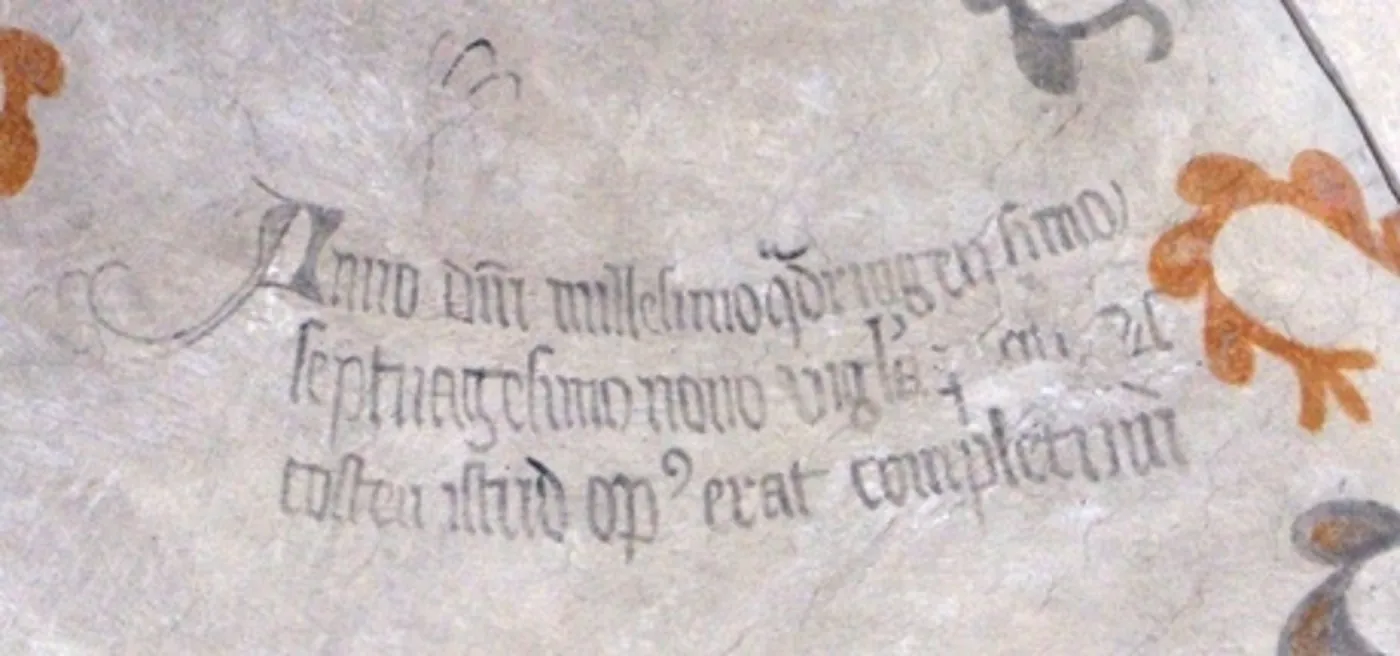 Anno dm̄ millesimo qͣdringentesimo
septuagesimo nono
costen istud opꝰ erat completum